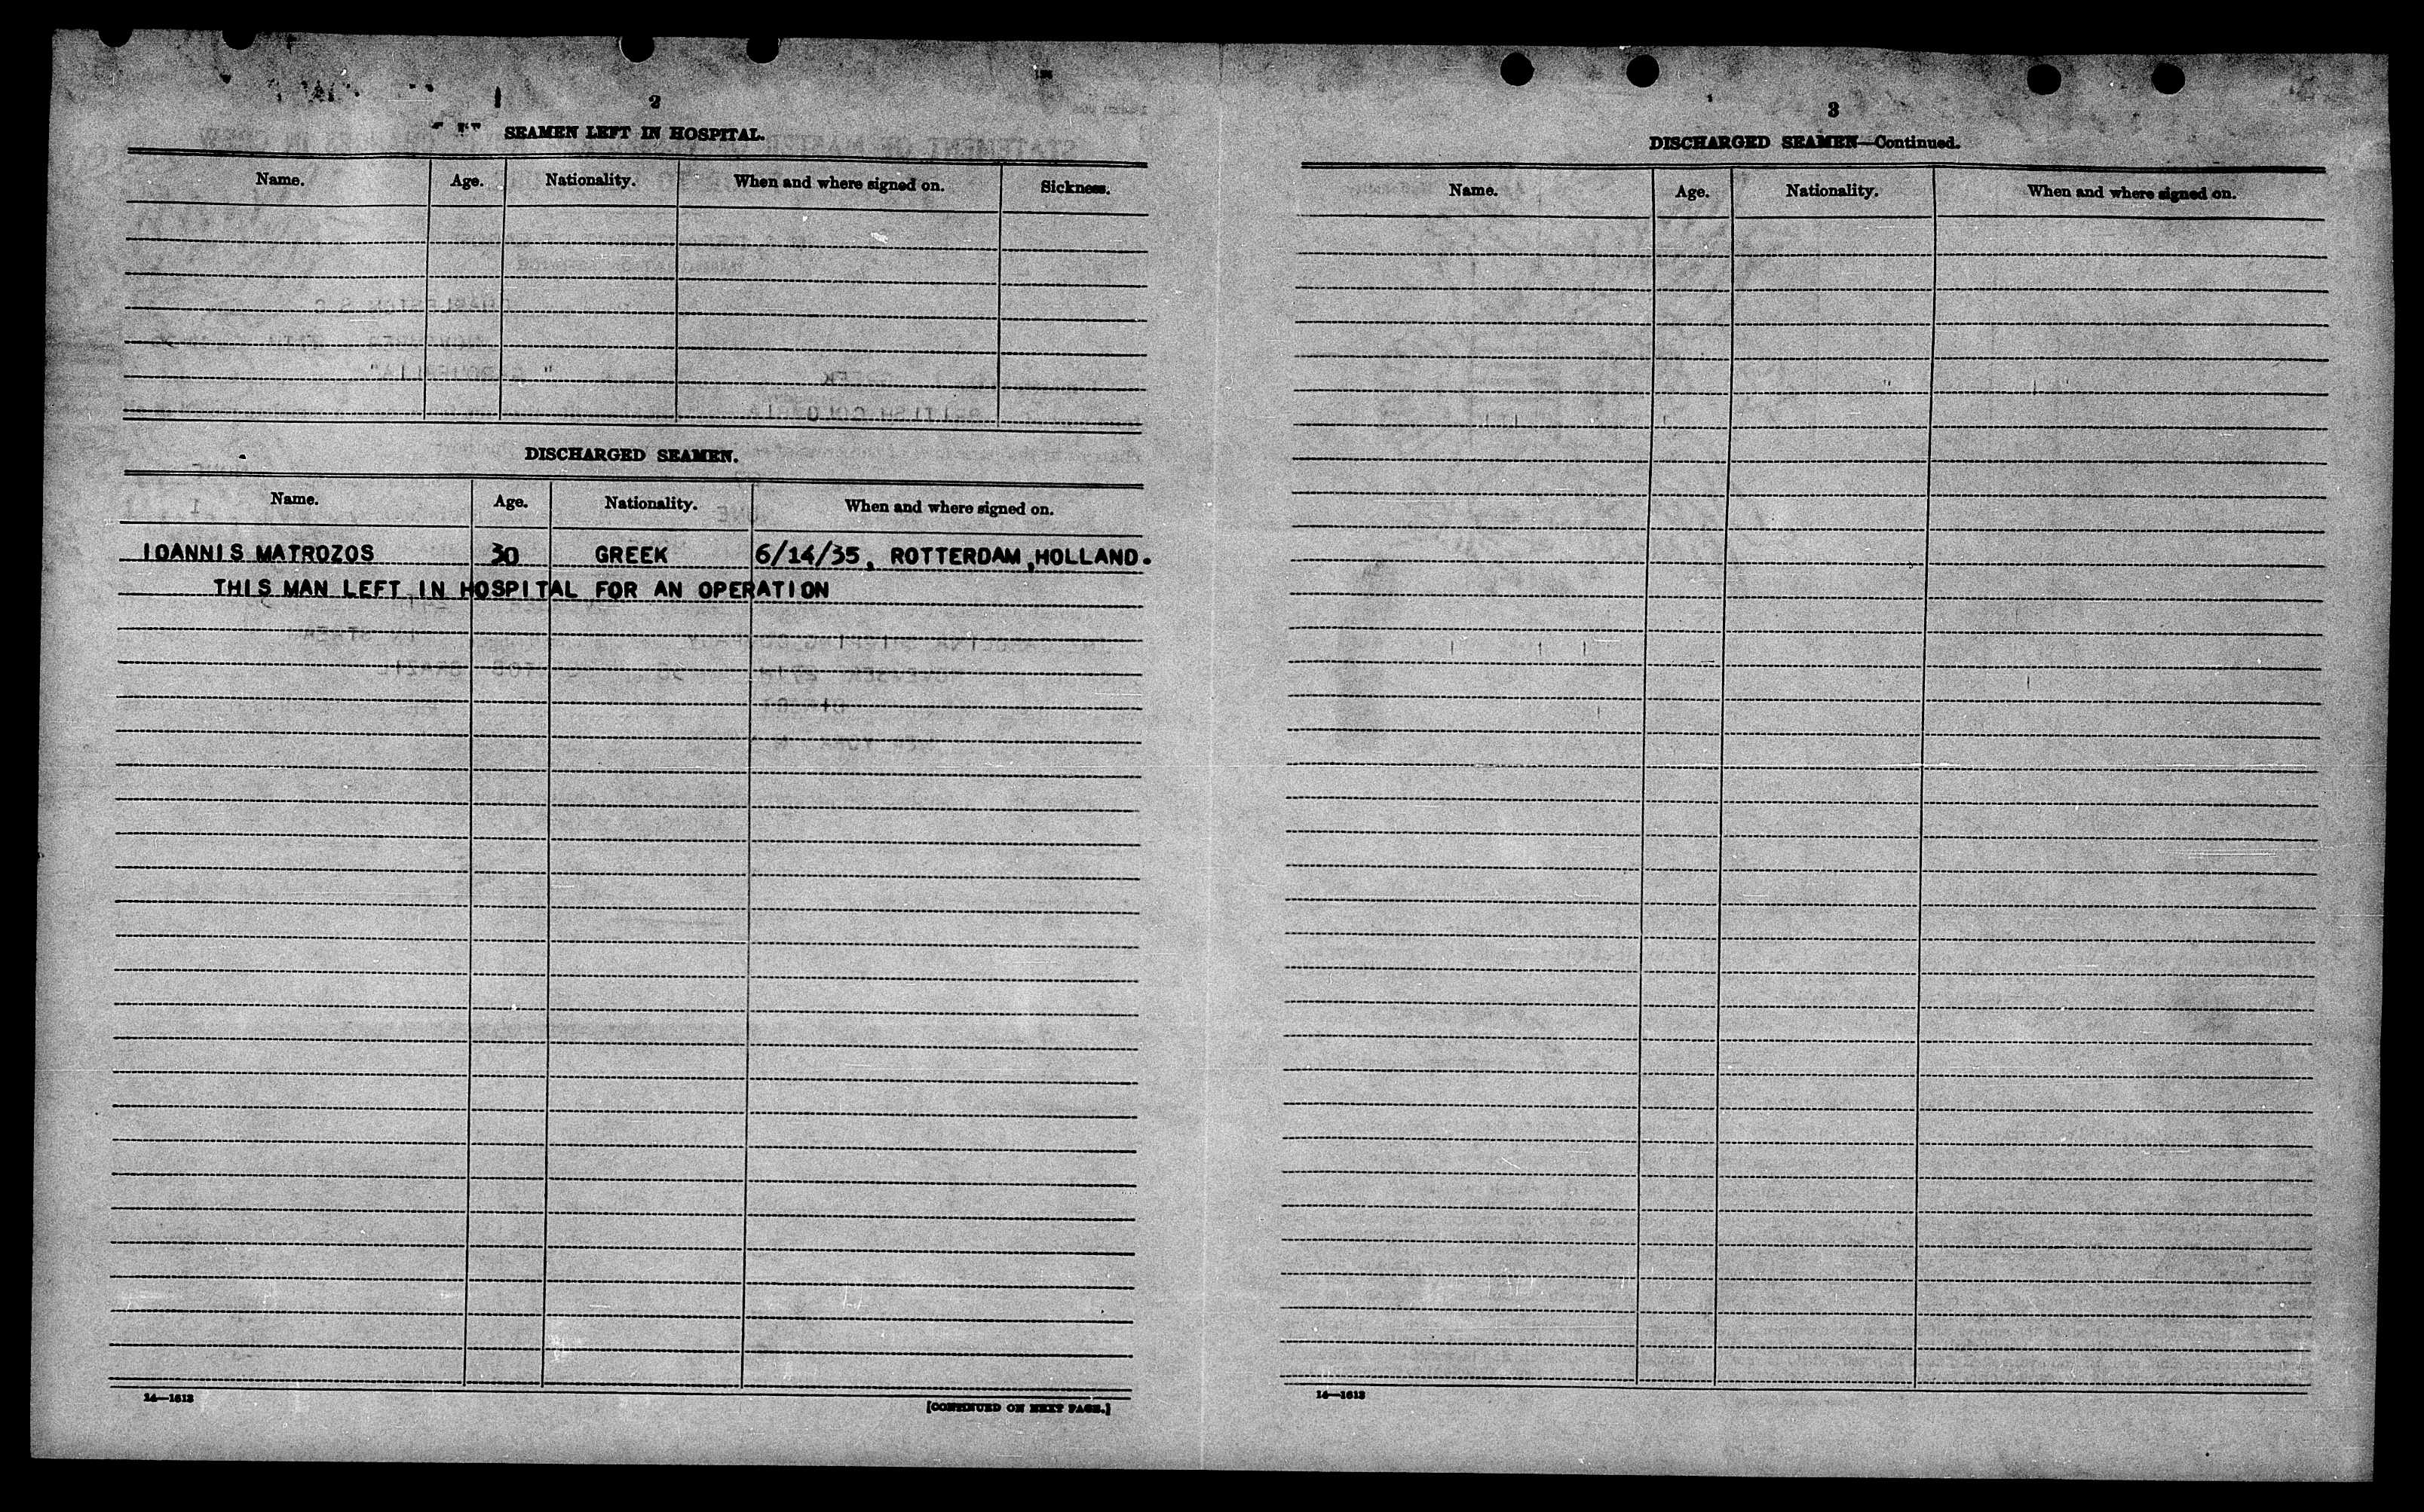 2
SEAMEN LEFT IN HOSPITAL.
Name. Age. Nationality. When and where signed on. Sickness.
DISCHARGED SEAMEN.
Name. Age. Nationality. When and where signed on.
IOANNIS MATROZOS 30 GREEK 6/14/35, ROTTERDAM,HOLLAND.
THIS MAN LEFT IN HOSPITAL FOR AN OPERATION
14—1613
[CONTINUED ON NEXT PAGE.]
3
DISCHARGED SEAMEN—Continued.
Name. Age. Nationality. When and where signed on.
14—1613